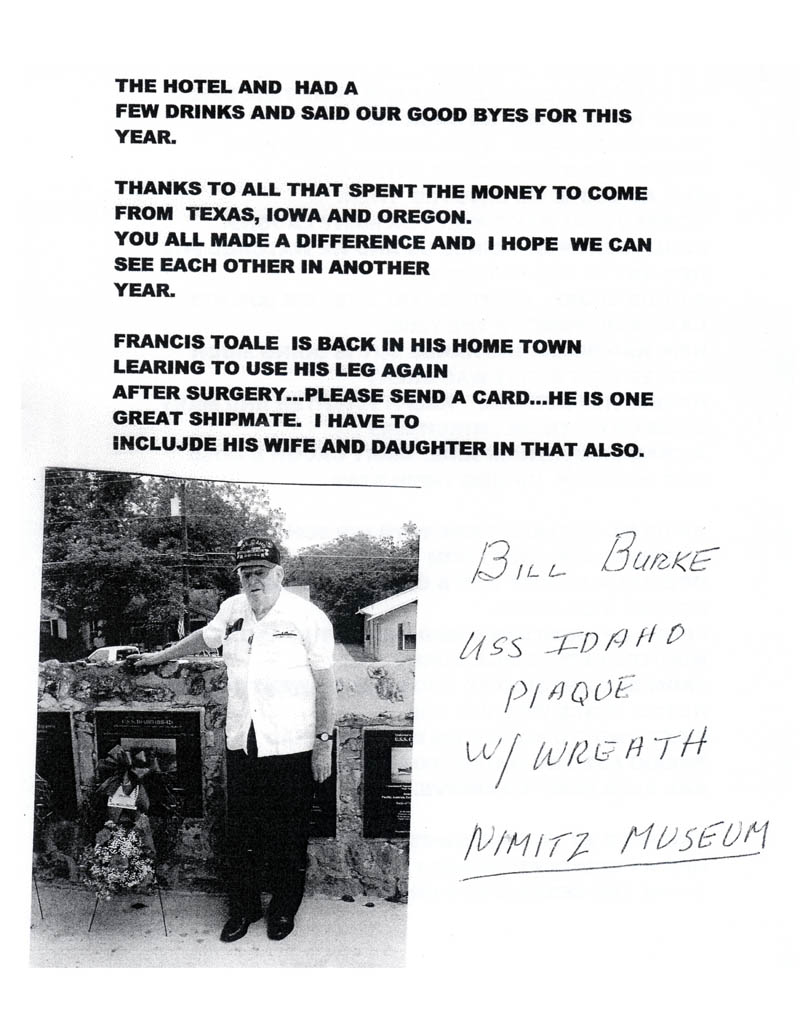 THE HOTEL AND HAD A
FEW DRINKS AND SAID OUR GOOD BYES FOR THIS
YEAR.
THANKS TO ALL THAT SPENT THE MONEY TO COME
FROM TEXAS, IOWA AND OREGON.
YOU ALL MADE A DIFFERENCE AND I HOPE WE CAN
SEE EACH OTHER IN ANOTHER
YEAR.
FRANCIS TOALE IS BACK IN HIS HOME TOWN
LEARING TO USE HIS LEG AGAIN
AFTER SURGERY...PLEASE SEND A CARD...HE IS ONE
GREAT SHIPMATE. I HAVE TO
INCLUJDE HIS WIFE AND DAUGHTER IN THAT ALSO.
BILL BURKE
USS IDAHO
PLAQUE
W/ WREATH
NIMITZ MUSEUM